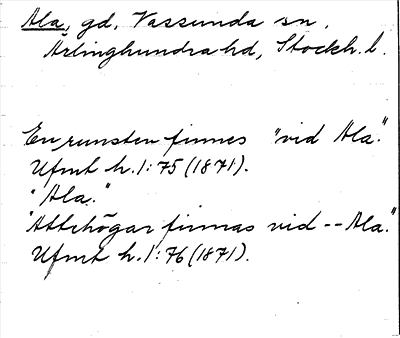 Ala, gd, Vassunda sn,
Ärlinghundra hd, Stockh. l.
En runsten finnes "vid Ala."
Ufmt h. 1:75 (1871).
"Ala."
"Ättehögar finnas vid -- Ala."
Ufmt h. 1:76 (1871).